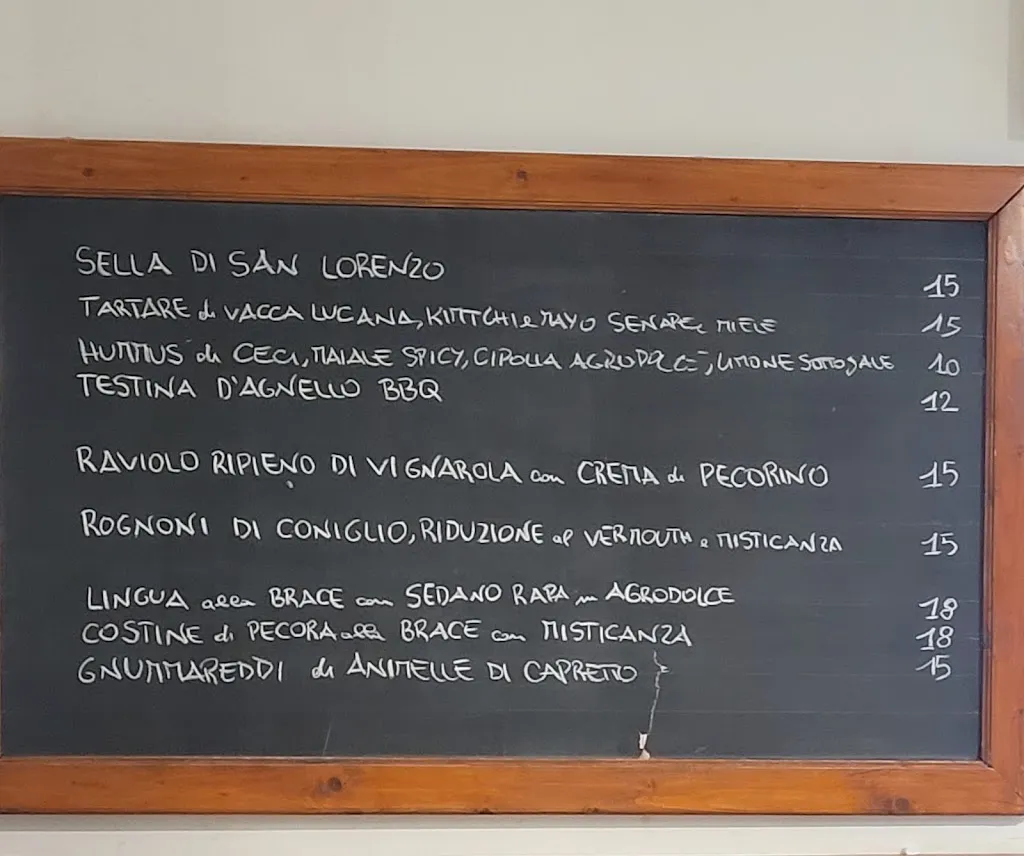 SELLA DI SAN LORENZO 15
TARTARE di VACCA LUCANA, KIMCHI e MAYO SENAPE e MIELE 15
HUMMUS di CECI, MAIALE SPICY, CIPOLLA AGRODOLCE, LIMONE SOTTOSALE 10
TESTINA D'AGNELLO BBQ 12
RAVIOLO RIPIENO DI VIGNAROLA con CREMA di PECORINO 15
ROGNONI DI CONIGLIO, RIDUZIONE al VERMOUTH e MISTICANZA 15
LINGUA alla BRACE con SEDANO RAPA in AGRODOLCE 18
COSTINE di PECORA alla BRACE con MISTICANZA 18
GNUMMAREDDI di ANIMELLE DI CAPRETTO 15